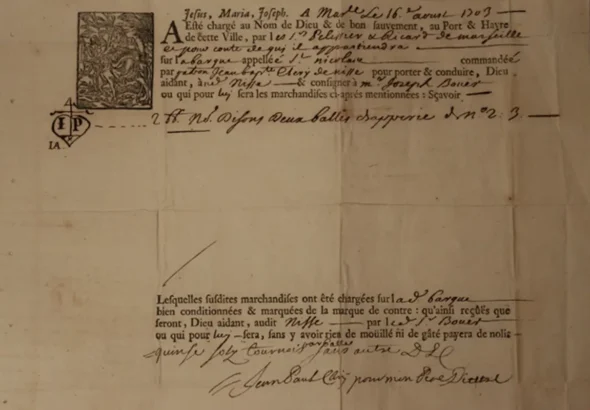 Jesus, Maria, Joseph. A Marlle Le 16e avril 1703
A Esté chargé au Nom de Dieu & de bon sauvement, au Port & Havre
de cette Ville, par les Srs Pelissier & Ricard de marseille
et pour conte de qui il appartiendra
sur la barque appellée St nicolas commandée
par patron Jean bapte de nisse pour porter & conduire, Dieu
aidant, aud Nisse & consigner a mr Joseph Bouer
ou qui pour luy sera les marchandises ci-après mentionnées : Sçavoir
I P
2 Bt No Deux balles No 2 : 3
IA
Lesquelles susdites marchandises ont été chargées sur lad barque
bien conditionnées & marquées de la marque de contre : qu'ainsi reçûës que
seront, Dieu aidant, audit Nisse par led Sr Bouer
ou qui pour luy sera, sans y avoir ries de mouillé ni de gâté payera de nolis
quinse solz Tournois par balle sans autre
Jean Paul pour mon Pere